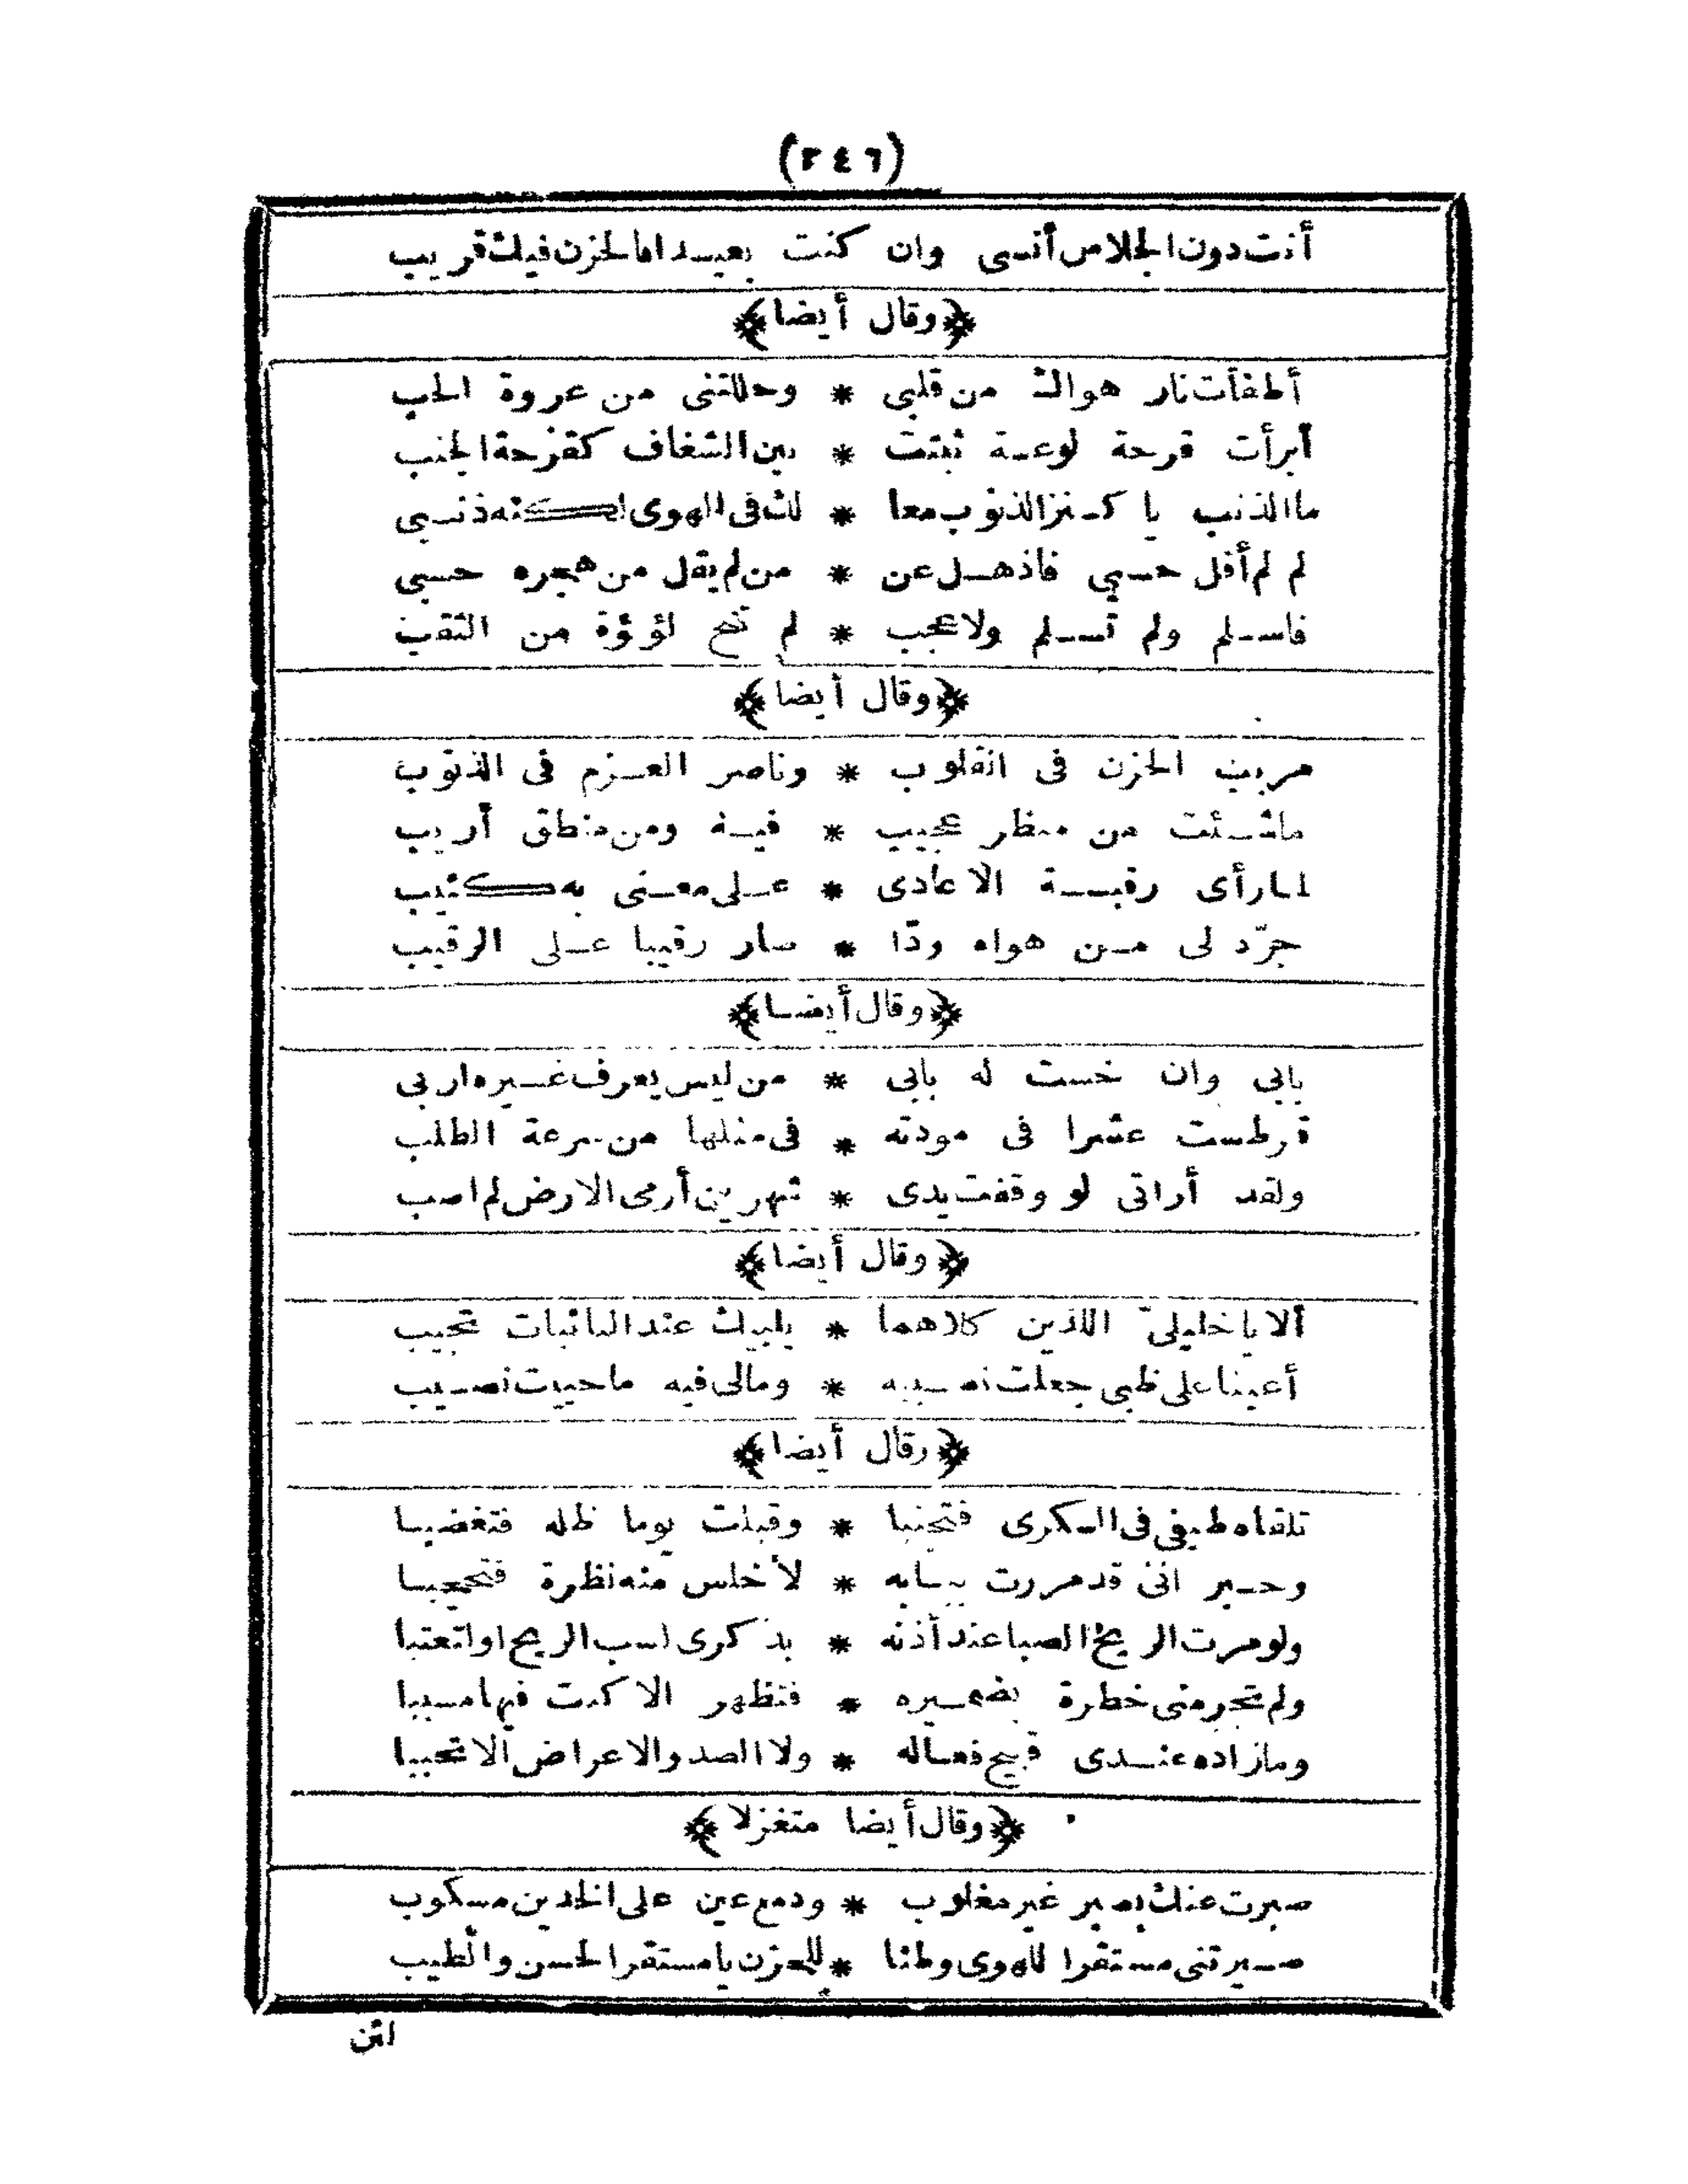 (٢٤٦)
أنت دون الجلاس أنسى وان كنت بعيدا فالحزن فيك قريب
﴿وقال أيضا﴾
أطفأت نار هواك من قلبى * وحللتنى من عروة الحب
أبرأت قرحة لوعة ثبتت * بين الشغاف كقرحة الجنب
ما الذنب يا كنز الذنوب معا * لك فى الهوى لكنه ذنبى
لم لم أقل حسبى فاذهل عن * من لم يقل من هجره حسبى
فاسلم ولم تسلم ولا عجب * لم تنج لؤلؤة من الثقب
﴿وقال أيضا﴾
مريب الحزن فى القلوب * وناصر العزم فى الذنوب
ماشئت من منظر عجيب * فيه ومن منطق أريب
لمارأى رقبة الاعادى * على معنى به كئيب
جرّد لى من هواه ودّا * صار رقيبا على الرقيب
﴿وقال أيضا﴾
بابى وان خست له بابى * من ليس يعرف غيره اربى
قرطست عشرا فى مودته * فى مثلها من سرعة الطلب
ولقد أرانى لو وقفت يدى * شهرين أرمى الارض لم اصب
﴿وقال أيضا﴾
ألا يا خليلىّ اللذين كلاهما * يلبيك عند النائبات تجيب
أعينا على ظبى جعلت نصيبه * ومالى فيه ما حييت نصيب
﴿وقال أيضا﴾
تلقاه طيفى فى الكرى فتجنبا * وقبلت يوما ظله فتغضبا
وخبر انى قد مررت ببابه * لأخلس منه نظرة فتحجبا
ولو مرت الريح الصبا عند أذنه * بذكرى لسب الريح او لتعتبا
ولم تجر منى خطرة بضميره * فتظهر الا كنت فيها مسببا
ومازاده عندى قبيح فعاله * ولا الصد والاعراض الا تحببا
﴿وقال أيضا متغزلا﴾
صبرت عنك بصبر غير مغلوب * ودمع عين على الخدين مسكوب
صيرتنى مستقرا للهوى وطنا * للحزن يا مستقر الحسن والطيب